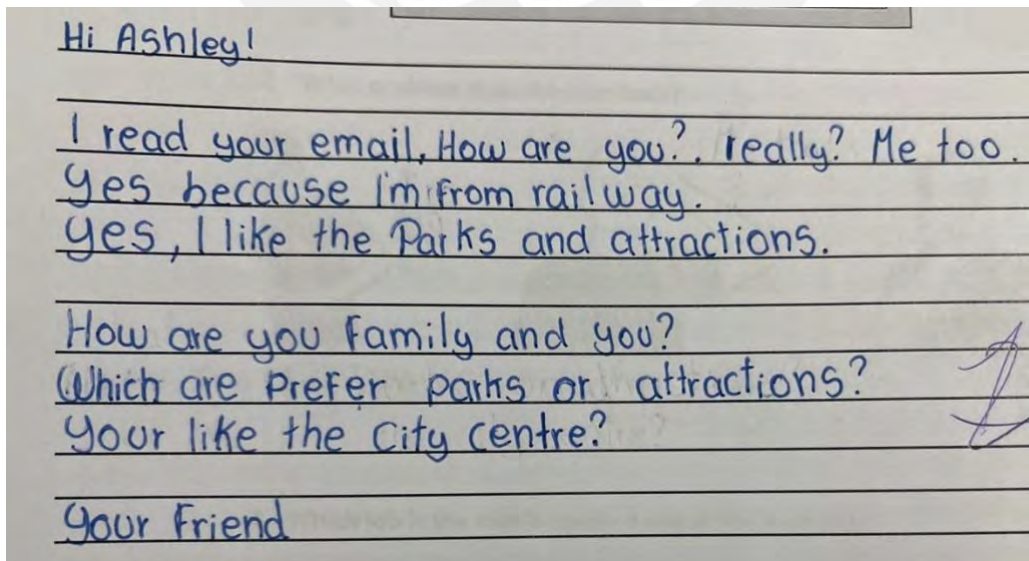 Hi Ashley!
I read your email. How are you?. really? Me too.
Yes because I'm from railway.
Yes, I like the Parks and attractions.
How are you family and you?
Which are prefer parks or attractions?
Your like the city centre?
Your friend